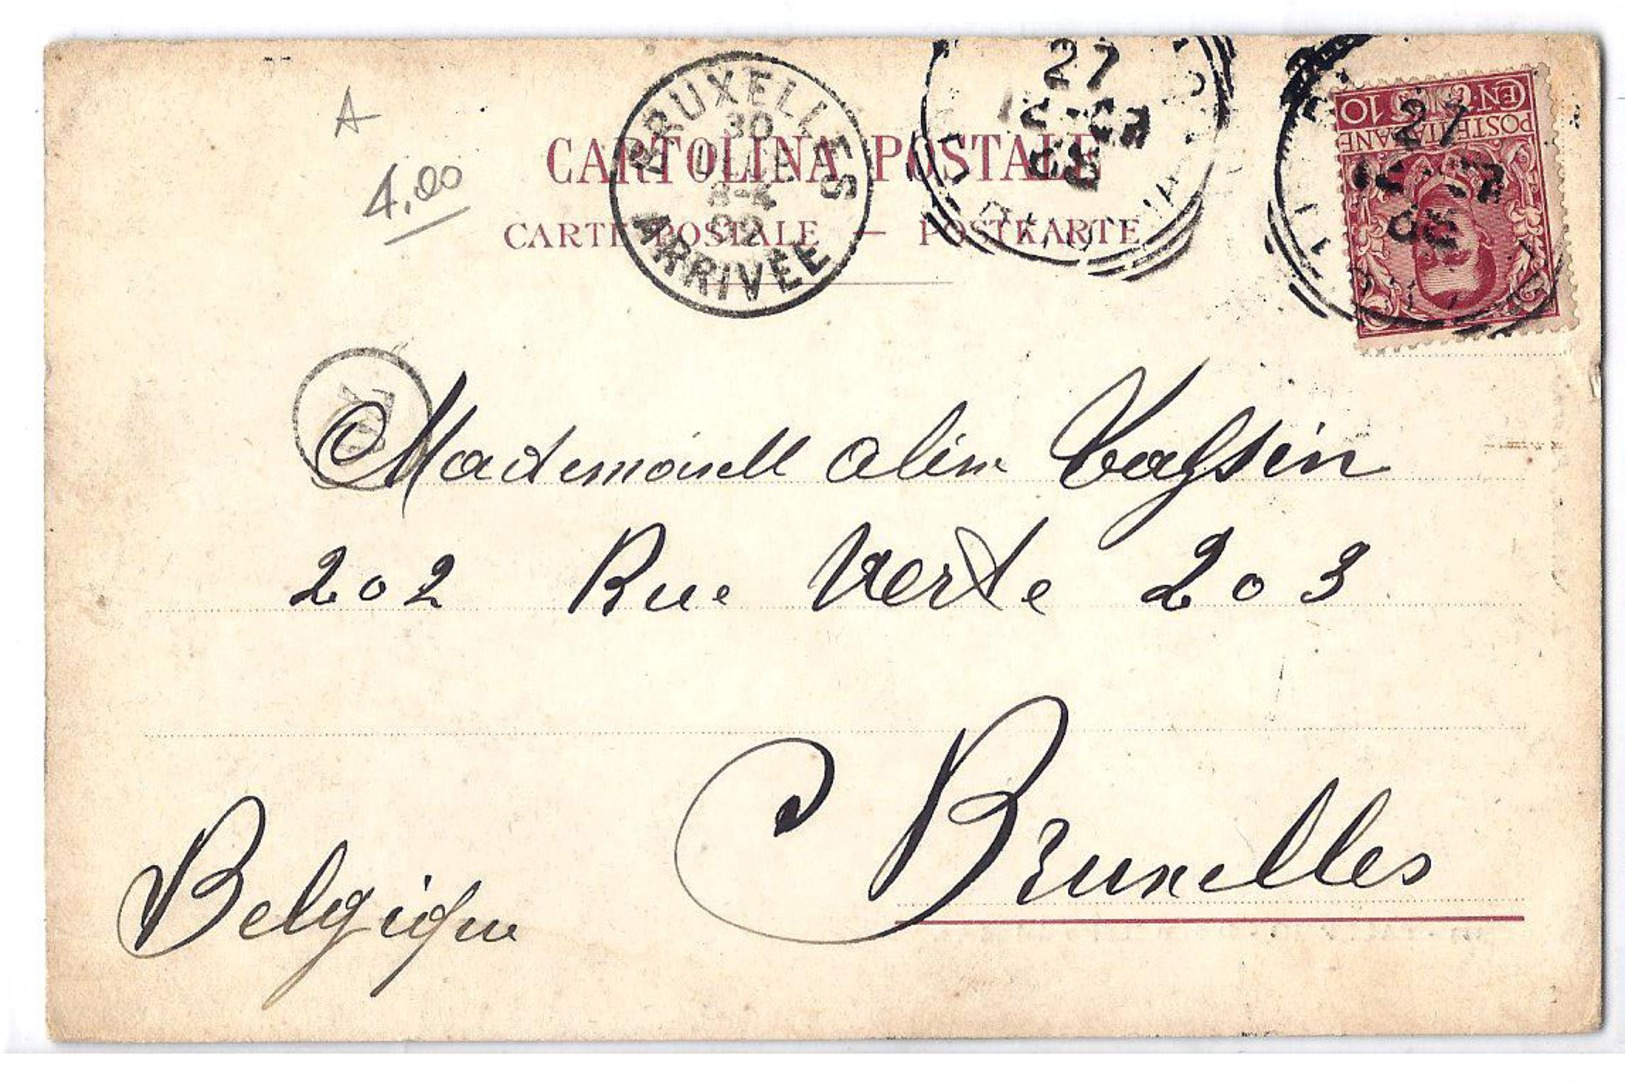 A
4,00
CARTOLINA POSTALE
CARTE POSTALE — POSTKARTE
BRUXELLES
30
3-4
02
ARRIVÉE
27
27
POSTE ITALIANE
CENT. 10
Mademoisell aline
202 Rue Verte 203
Bruxelles
Belgique